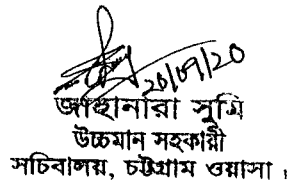 ২৮/০৭/২০
জাহানারা সুমি
উচ্চমান সহকারী
সচিবালয়, চট্টগ্রাম ওয়াসা ।